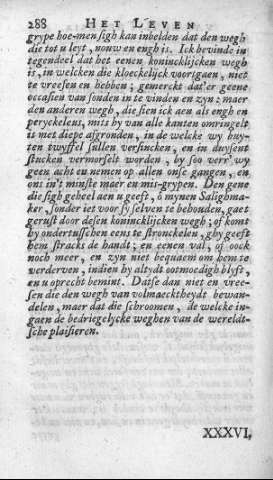 288 HET LEVEN
grype hoe-men sigh kan inbelden dat den wegh
die tot u leyt, nouw en engh is. Ick bevinde in
tegendeel dat het eenen konincklijcken wegh
is, in welcken die kloeckelijck voortgaen, niet
te vreesen en hebben; gemerckt dat'er geene
occasien van sonden in te vinden en zyn: maer
den anderen wegh, die sien ick aen als engh en
peryckelent, mits hy van alle kanten omringelt
is met diepe afgronden, in de welcke wy buy-
ten twyffel sullen versincken, en in duysent
stucken vermorselt worden, by soo verr' wy
geen acht en nemen op allen onse gangen, en
ons in't minste meer en mis-grypen. Den gene
die sigh geheel aen u geeft, ô mynen Saligh-ma-
ker, sonder iet voor sy selven te behouden, gaet
gerust door desen konincklijcken wegh; of komt
hy ondertusschen eens te stronckelen, ghy geeft
hem strackt de handt; en eenen val, of oock
noch meer, en zyn niet bequaem om hem te
verderven, indien hy altydt ootmoedigh blyft,
en u oprecht bemint. Datse dan niet en vree-
sen die den wegh van volmaecktheydt bewan-
delen, maer dat die schroomen, de welcke in-
gaen de bedriegelycke weghen van de wereldt-
sche plaisieren.
XXXVI.